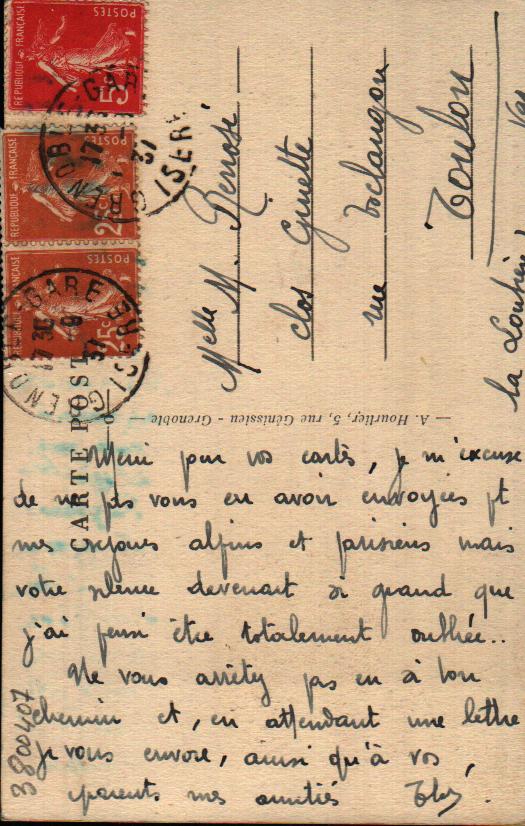 RÉPUBLIQUE FRANÇAISE
POSTES
5c
RÉPUBLIQUE FRANÇAISE
POSTES
25c
RÉPUBLIQUE FRANÇAISE
POSTES
25c
GRENOBLE GARE ISERE
GRENOBLE GARE ISERE
CARTE POST
Melle M. Renosi
clos
rue
Toulon
Var
la
— A. Hourlier, 5, rue Génissieu - Grenoble
Merci pour vos cartes, je m'excuse
de ne pas vous en avoir envoyées pt
mes séjours alpins et parisiens mais
votre silence devenait si grand que
j'ai pensé être totalement oubliée..
Ne vous arrêtez pas en si bon
chemin et, en attendant une lettre
je vous envoie, ainsi qu'à vos
parents mes amitiés
3800407